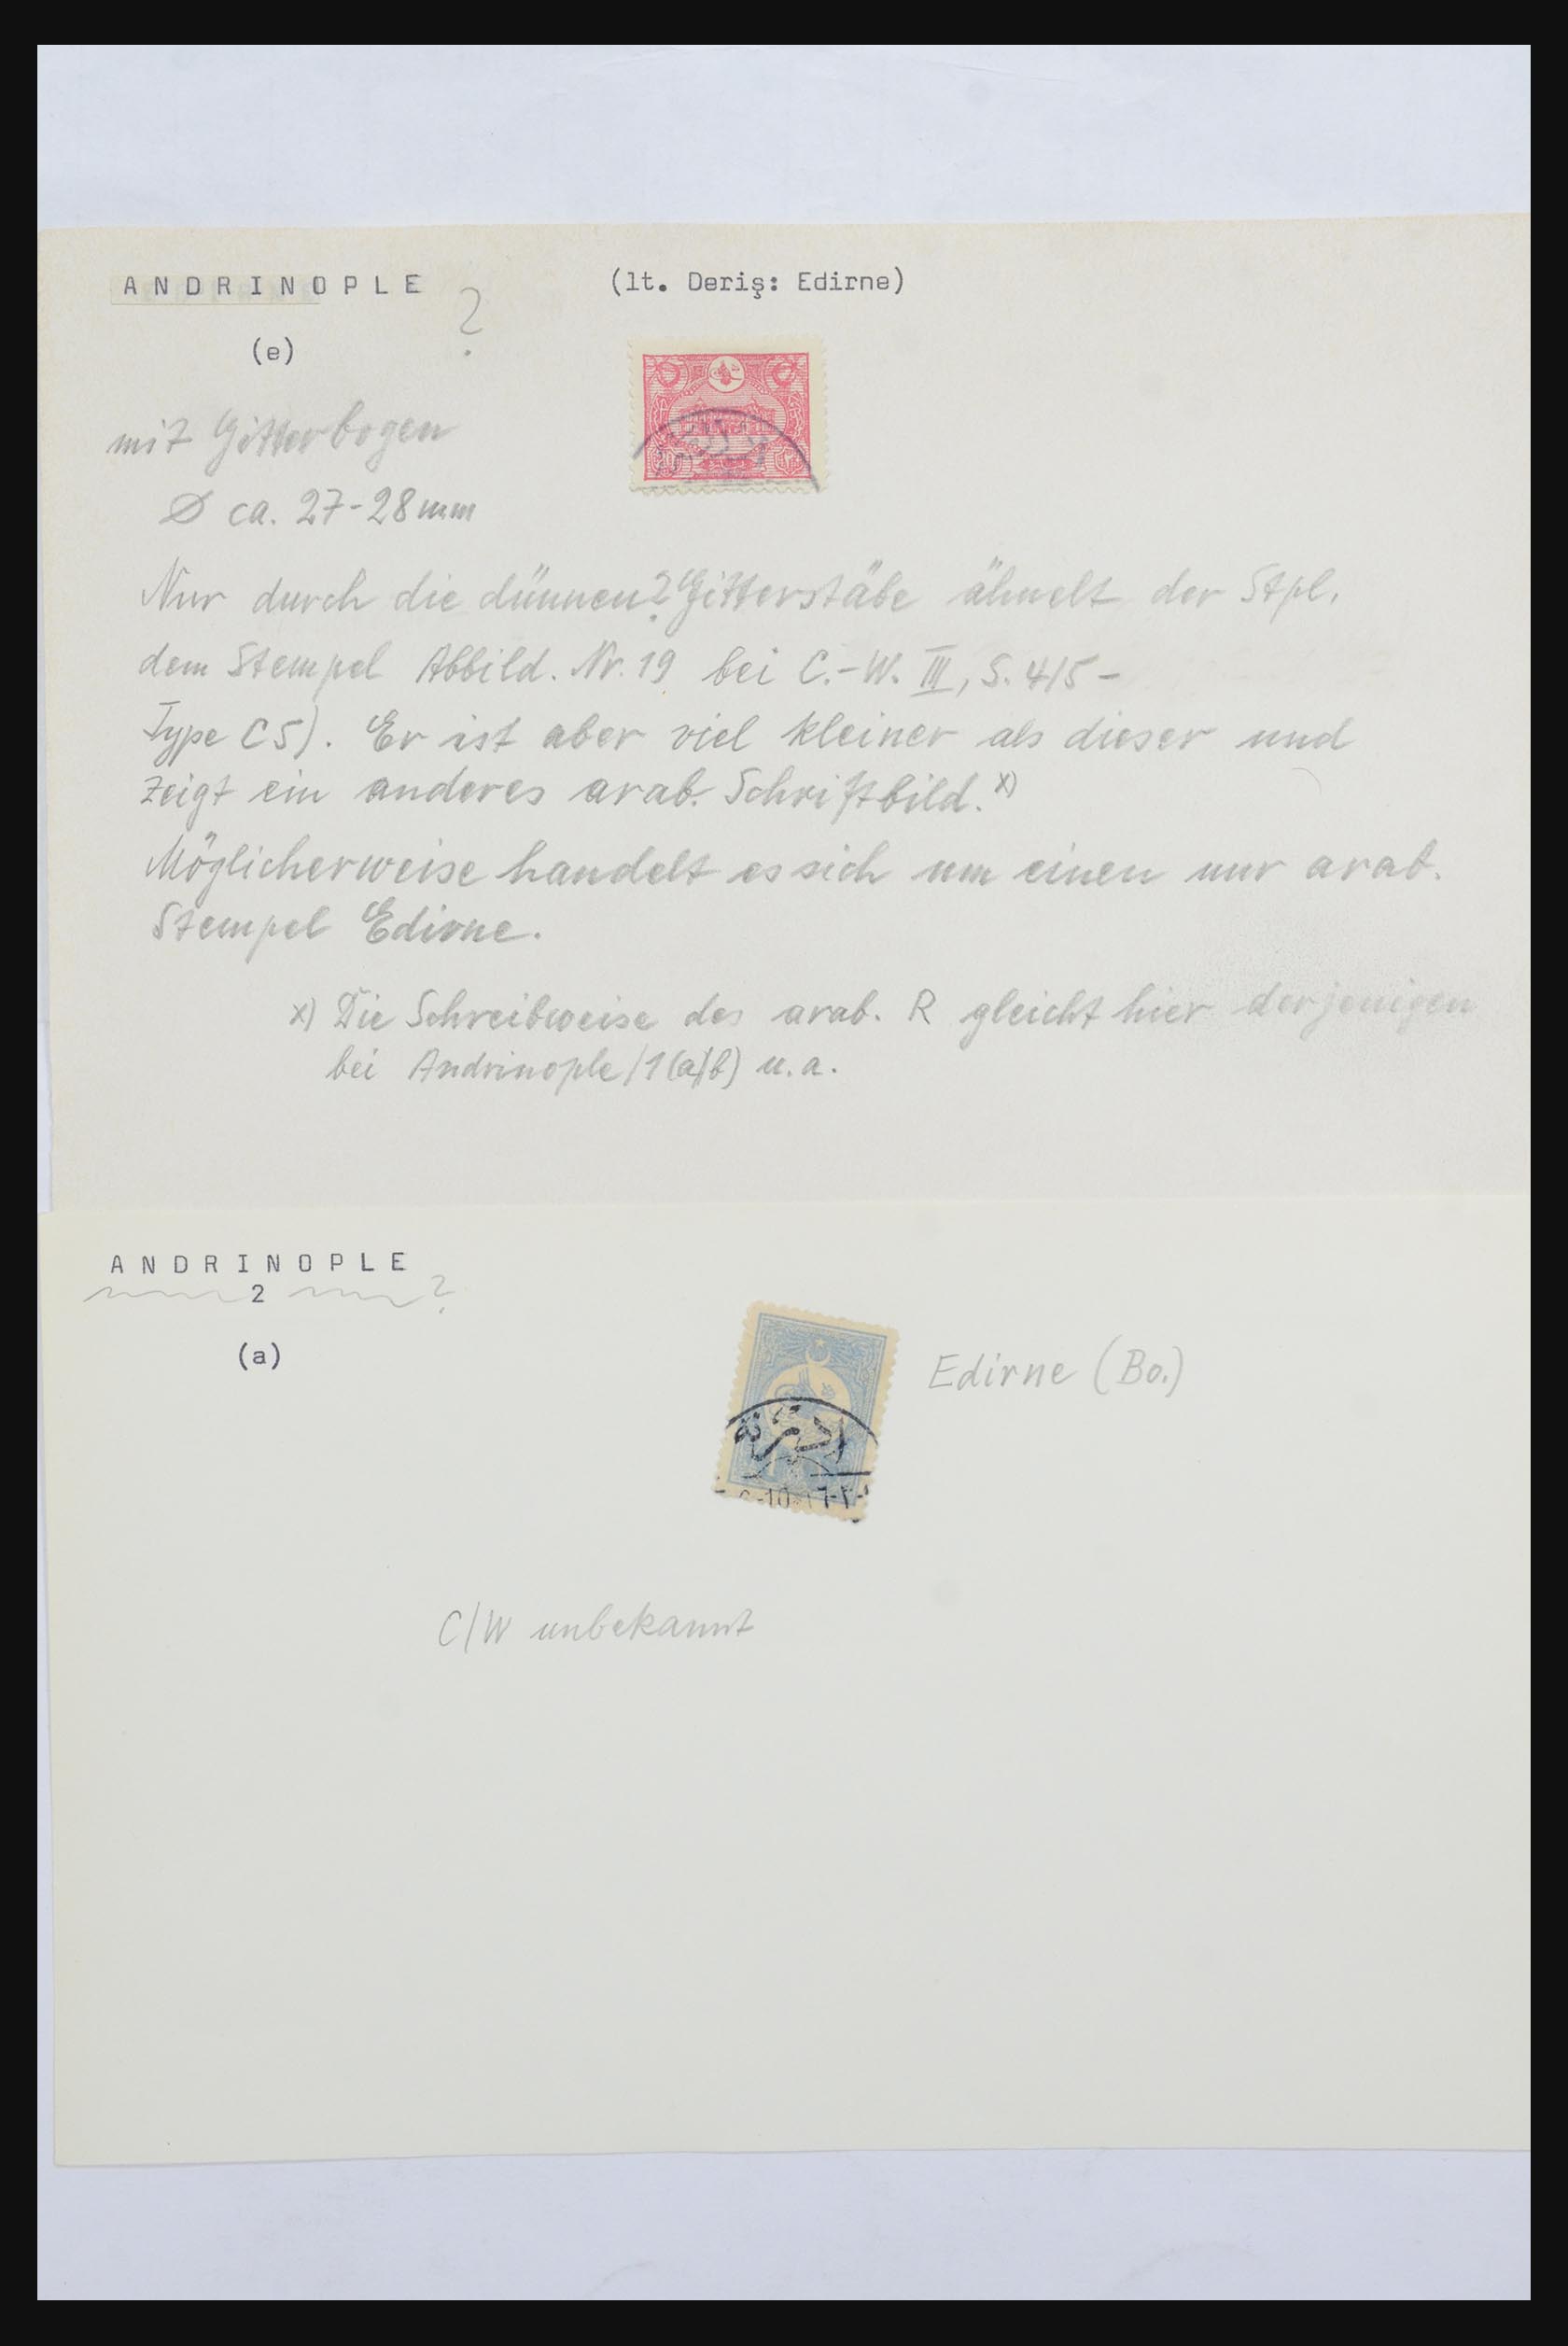 ANDRINOPLE ? (lt. Deriş: Edirne)
(e)
mit Gitterbogen
Ø ca. 27-28mm
Nur durch die dünnen? Gitterstäbe ähnelt der Stpl.
dem Stempel Abbild. Nr. 19 bei C.-W. III, S. 4/5 -
Type C5). Er ist aber viel kleiner als dieser und
zeigt ein anderes arab. Schriftbild. x)
Möglicherweise handelt es sich um einen nur arab.
Stempel Edirne.
x) Die Schreibweise des arab. R gleicht hier derjenigen
bei Andrinople/1(a/b) u.a.
ANDRINOPLE
2 ?
(a)
Edirne (Bo.)
ادرنه
C/W unbekannt